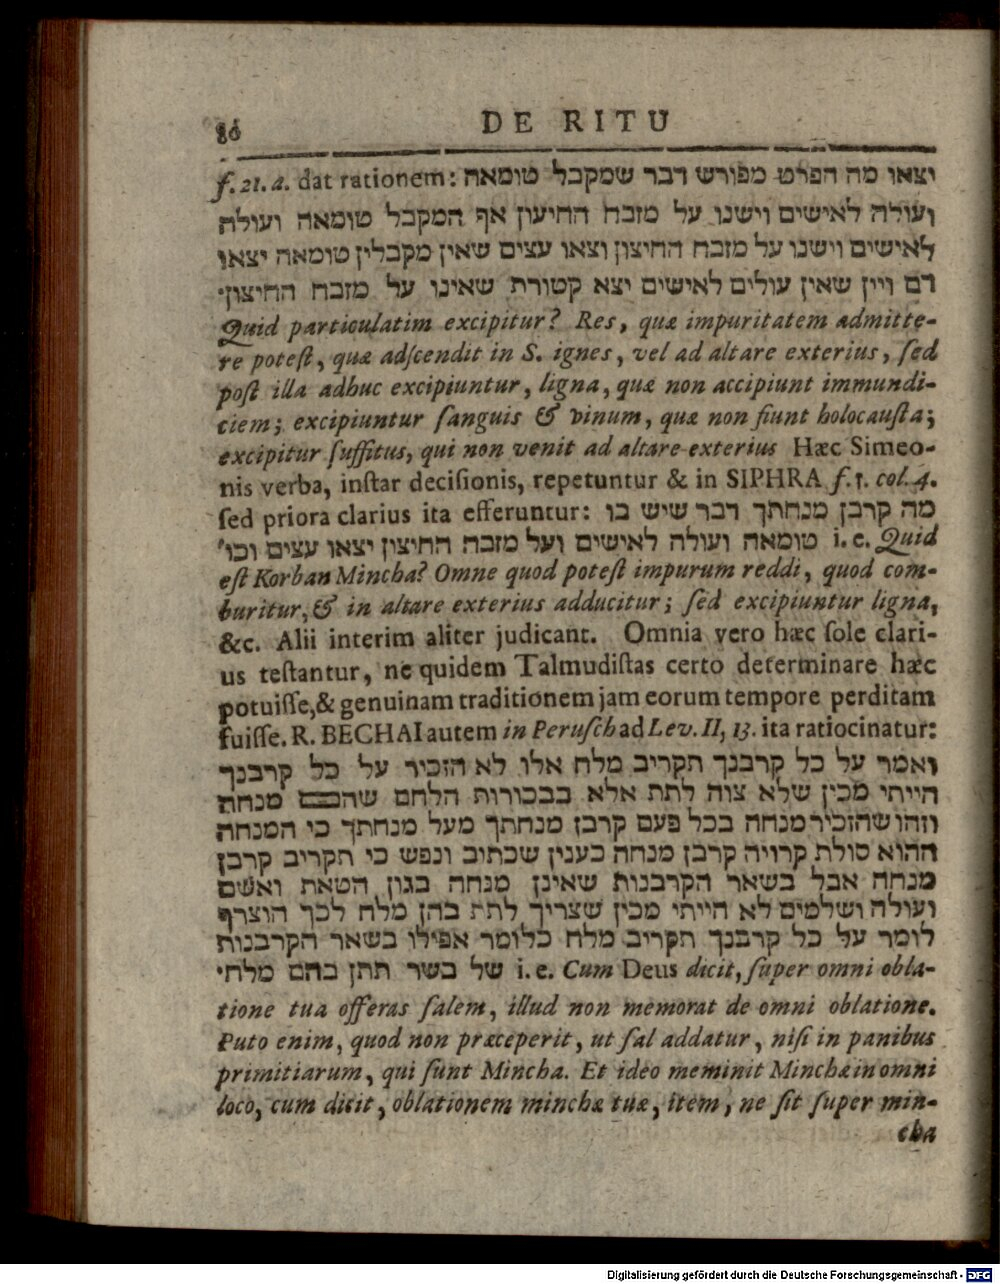 86
DE RITU
f. 21. a. dat rationem: יצאו מה הפרט מפורש דבר שמקבל טומאה
ועולה לאישים וישנו על מזבח החיעון אף המקבל טומאה ועולה
לאישים וישנו על מזבח החיצון וצאו עצים שאין מקבלין טומאה יצאו
דם ויין שאין עולים לאישים יצא קטורת שאינו על מזבח החיצון·
Quid particulatim excipitur? Res, quæ impuritatem admitte-
re poteſt, quæ adſcendit in S. ignes, vel ad altare exterius, ſed
poſt illa adhuc excipiuntur, ligna, quæ non accipiunt immundi-
ciem; excipiuntur ſanguis & vinum, quæ non fiunt holocauſta;
excipitur ſuffitus, qui non venit ad altare exterius Hæc Simeo-
nis verba, inſtar deciſionis, repetuntur & in SIPHRA f. 1. col. 4.
ſed priora clarius ita efferuntur: מה קרבן מנחתך דבר שיש בו
טומאה ועולה לאישים ועל מזבח החיצון יצאו עצים וכו' i. e. Quid
eſt Korban Mincha? Omne quod poteſt impurum reddi, quod com-
buritur, & in altare exterius adducitur; ſed excipiuntur ligna,
&c. Alii interim aliter judicant. Omnia vero hæc ſole clari-
us teſtantur, ne quidem Talmudiſtas certo determinare hæc
potuiſſe, & genuinam traditionem jam eorum tempore perditam
fuiſſe. R. BECHAI autem in Peruſch ad Lev. II, 13. ita ratiocinatur:
ואמר על כל קרבנך תקריב מלח אלו לא הזכיר על כל קרבנך
הייתי מכין שלא צוה לתת אלא בבכורות הלחם שהם מנחה
וזהו שהזכיר מנחה בכל פעם קרבן מנחתך מעל מנחתך כי המנחה
ההוא סולת קרויה קרבן מנחה כענין שכתוב ונפש כי תקריב קרבן
מנחה אבל בשאר הקרבנות שאינן מנחה בגון הטאת ואשם
ועולה ושלמים לא הייתי מכין שצריך לתת בהן מלח לכך הוצרך
לומר על כל קרבנך תקריב מלח כלומר אפילו בשאר הקרבנות
של בשר תתן בהם מלח· i. e. Cum Deus dicit, ſuper omni obla-
tione tua offeras ſalem, illud non memorat de omni oblatione.
Puto enim, quod non præceperit, ut ſal addatur, niſi in panibus
primitiarum, qui ſunt Mincha. Et ideo meminit Minchæ in omni
loco, cum dicit, oblationem minchæ tuæ, item, ne ſit ſuper min-
cha
Digitalisierung gefördert durch die Deutsche Forschungsgemeinschaft - DFG